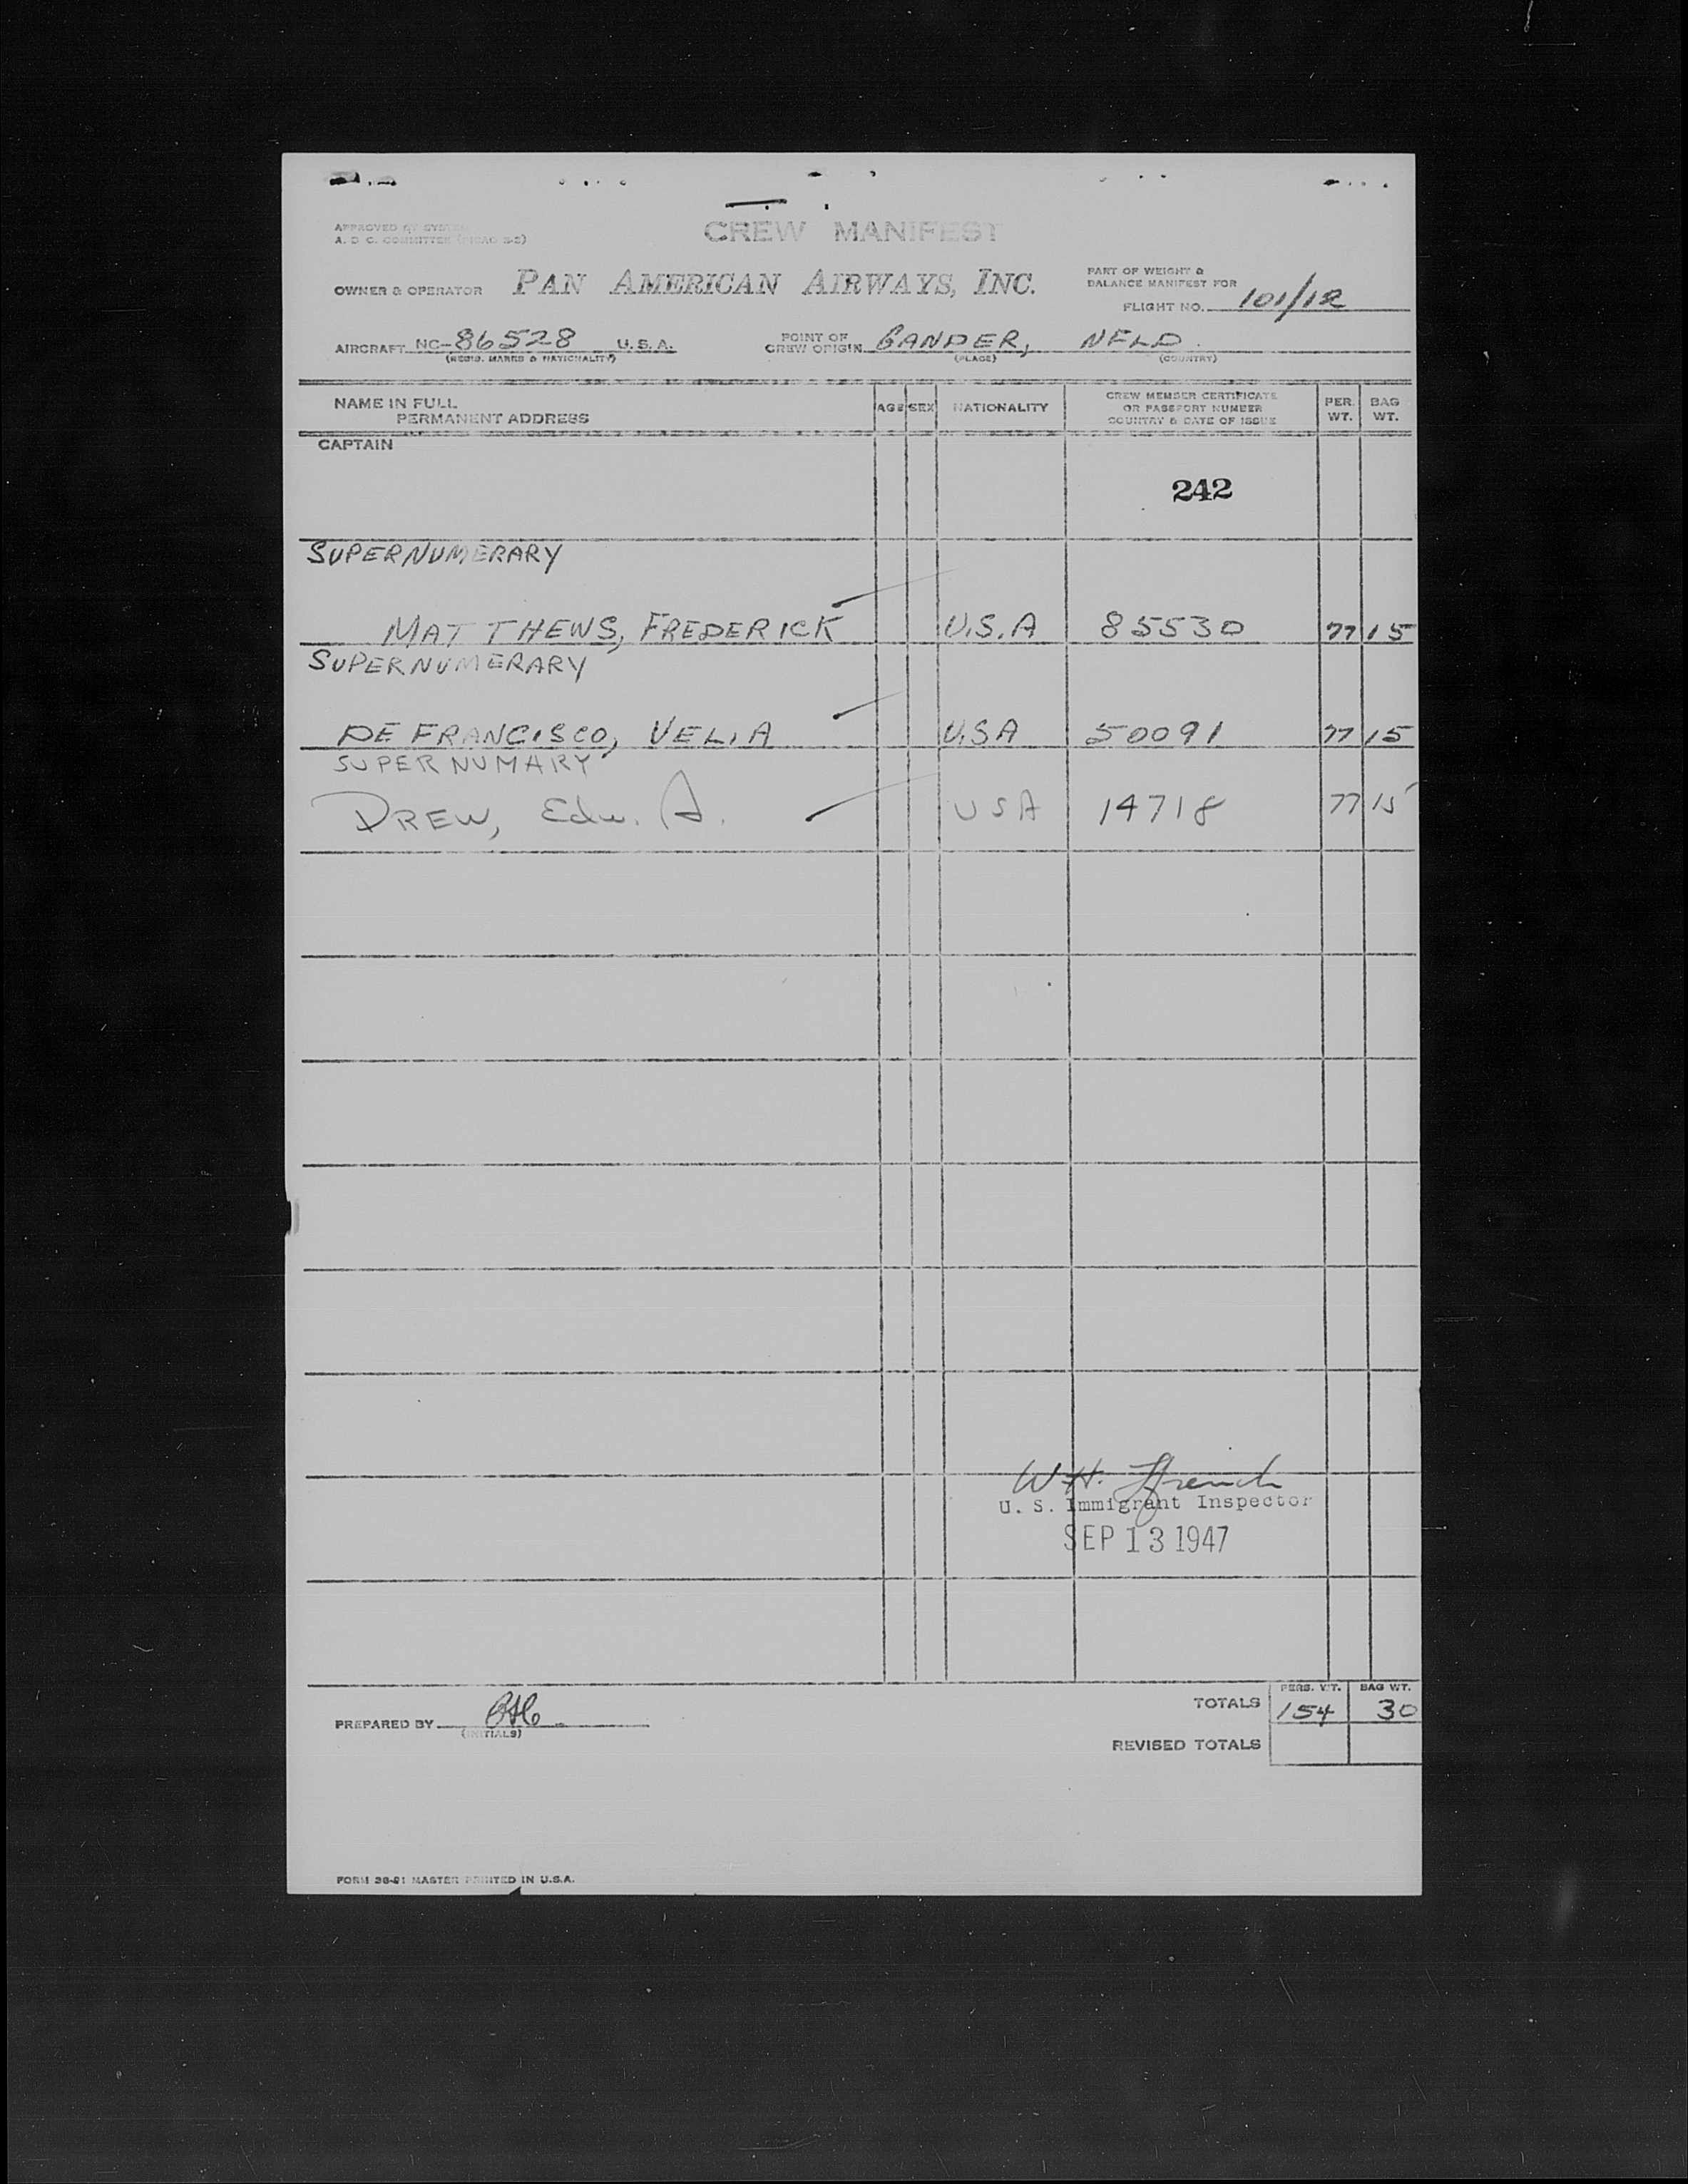 APPROVED BY SYSTEM
A. D. C. COMMITTEE (PICAO 2-2)
CREW MANIFEST
OWNER & OPERATOR PAN AMERICAN AIRWAYS, INC.
PART OF WEIGHT &
BALANCE MANIFEST FOR
FLIGHT NO. 101/12
AIRCRAFT NC-86528 U.S.A.
(REGID. MARKS & NATIONALITY)
POINT OF
CREW ORIGIN GANDER, NFLD.
(PLACE) (COUNTRY)
NAME IN FULL
PERMANENT ADDRESS
AGE SEX NATIONALITY
CREW MEMBER CERTIFICATE
OR PASSPORT NUMBER
COUNTRY & DATE OF ISSUE
PER. WT.
BAG WT.
CAPTAIN
242
SUPERNUMERARY
MATTHEWS, FREDERICK U.S.A 85530 77 15
SUPERNUMERARY
DE FRANCISCO, VELIA U.S.A 50091 77 15
SUPERNUMARY
DREW, Edw. A. USA 14718 77 15
W.H. French
U. S. Immigrant Inspector
SEP 13 1947
PERS. WT. BAG WT.
TOTALS 154 30
PREPARED BY
(INITIALS)
REVISED TOTALS
FORM 36-91 MASTER PRINTED IN U.S.A.